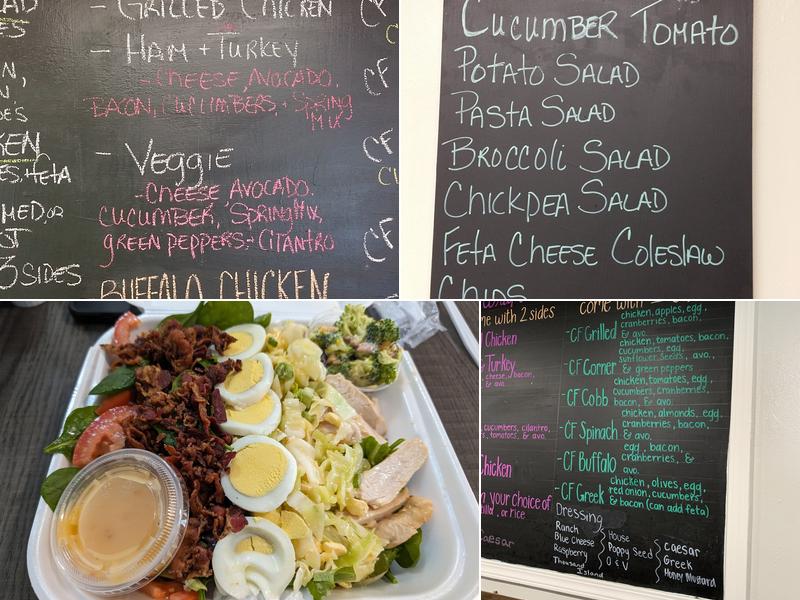 - GRILLED CHICKEN
- HAM + TURKEY
- CHEESE, AVOCADO,
BACON, CUCUMBERS, + SPRING
MIX
- VEGGIE
- CHEESE AVOCADO,
CUCUMBER, SPRING MIX,
GREEN PEPPERS, + CITANTRO
BUFFALO CHICKEN
KEN
ES, + FETA
MED, OR
ST
3 SIDES
CF
CF
CF
CUCUMBER TOMATO
POTATO SALAD
PASTA SALAD
BROCCOLI SALAD
CHICKPEA SALAD
FETA CHEESE COLESLAW
CHIPS
me with 2 sides
Chicken
Turkey
cheese, bacon,
& avo.
cucumbers, cilantro,
s, tomatoes, & avo.
Chicken
n your choice of
illed, or rice
Caesar
come with
chicken, apples, egg,
-CF Grilled cranberries, bacon,
& avo.
chicken, tomatoes, bacon,
cucumbers, egg,
-CF Corner sunflower seeds, avo.,
& green peppers
chicken, tomatoes, egg,
cucumbers, cranberries,
-CF Cobb bacon, & avo.
chicken, almonds, egg,
cranberries, bacon,
-CF Spinach & avo.
egg, bacon,
-CF Buffalo cranberries, &
avo.
chicken, olives, egg,
-CF Greek red onion, cucumbers,
& bacon (can add feta)
Dressing
Ranch
Blue Cheese
Raspberry
Thousand
Island
House
Poppy Seed
O & V
Caesar
Greek
Honey Mustard